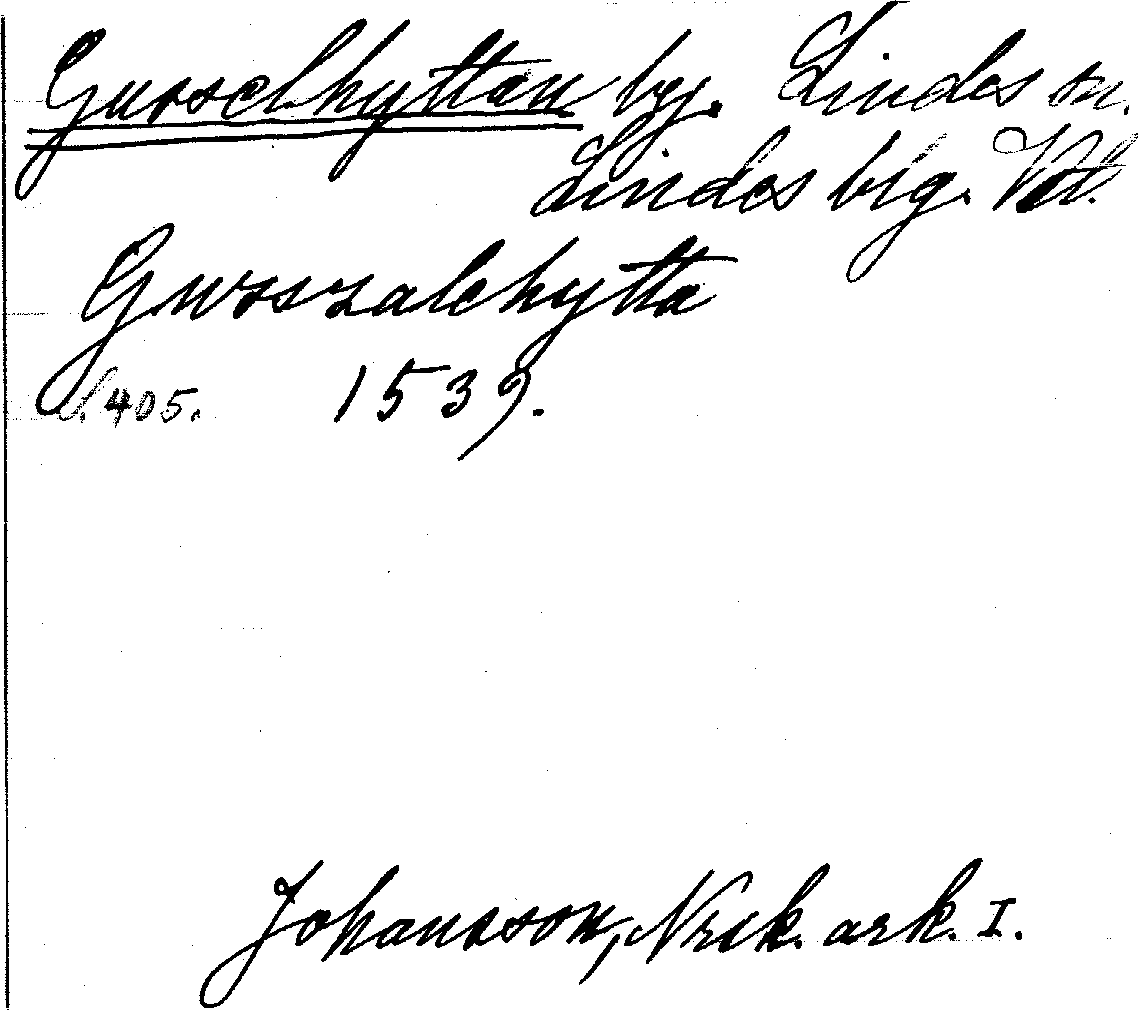 Gusselhyttan by. Lindes sn.
Lindes blg. Vstl.
Gwsszalehytta
s. 405. 1539.
Johansson, Nrik. ark. I.